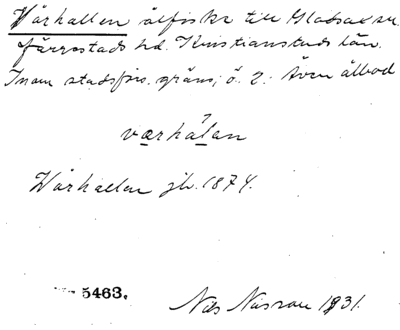 Vårhallen ålfiske till Gladsax sn.
Järrestads hd. Kristianstads län.
Inom stadsförs. gräns, ö. 2. Även ålbod
værhálan
Wårhallen jb. 1874.
5463.
Nils 1931.